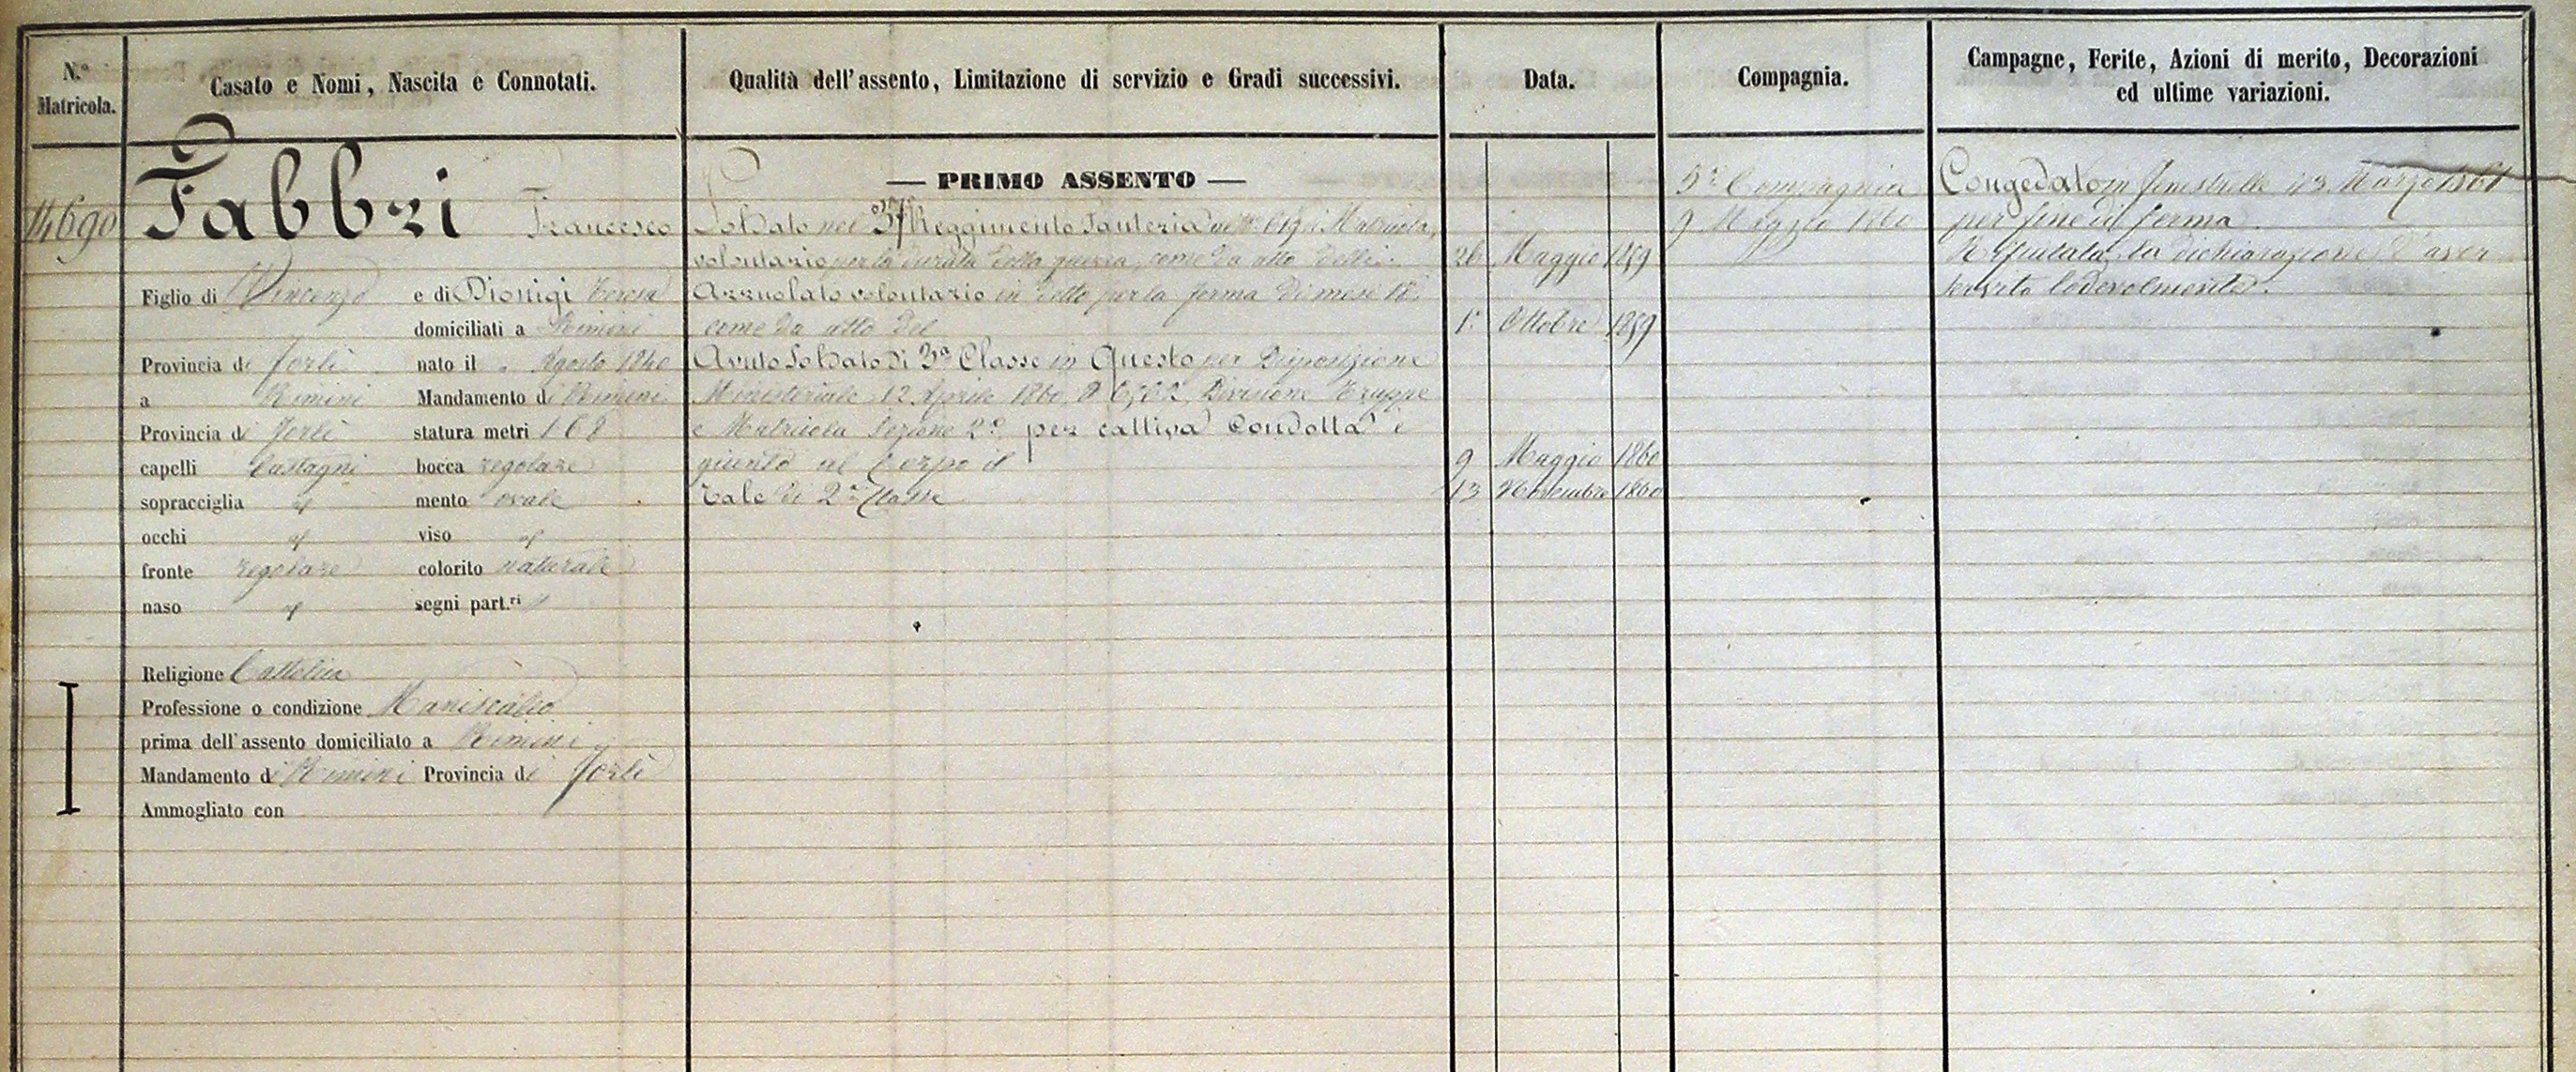 N.º Matricola.
Casato e Nomi, Nascita e Connotati.
Qualità dell'assento, Limitazione di servizio e Gradi successivi.
Data.
Compagnia.
Campagne, Ferite, Azioni di merito, Decorazioni
ed ultime variazioni.
14690
Fabbri Francesco
Figlio di Vincenzo e di Dionigi Teresa
domiciliati a Rimini
Provincia di Forlì nato il Agosto 1840
a Rimini Mandamento di Rimini
Provincia di Forlì statura metri 1 68
capelli Castagni bocca regolare
sopracciglia id mento ovale
occhi id viso id
fronte regolare colorito naturale
naso id segni part.ri
Religione Cattolica
Professione o condizione Maniscalco
prima dell'assento domiciliato a Rimini
Mandamento di Rimini Provincia di Forlì
Ammogliato con
— PRIMO ASSENTO —
Soldato nel Reggimento Fanteria Matricola,
volontario per la durata della guerra, come da atto delli 26 Maggio 1859
Arruolato volontario in detto per la ferma di mesi 18
come da atto del 1º Ottobre 1859
Avuto Soldato di 3ª Classe in Questo per Disposizione
Ministeriale 12 Aprile 1860 Divisione Truppe
e Matricola Sezione 2ª per cattiva Condotta è
giunto al Corpo il 9 Maggio 1860
Tale di 2ª Classe 13 Novembre 1860
Compagnia
9 Maggio 1860
Congedato in Fenestrelle Marzo 1861
per fine di ferma.
Rifiutata la dichiarazione d'aver
servito lodevolmente.